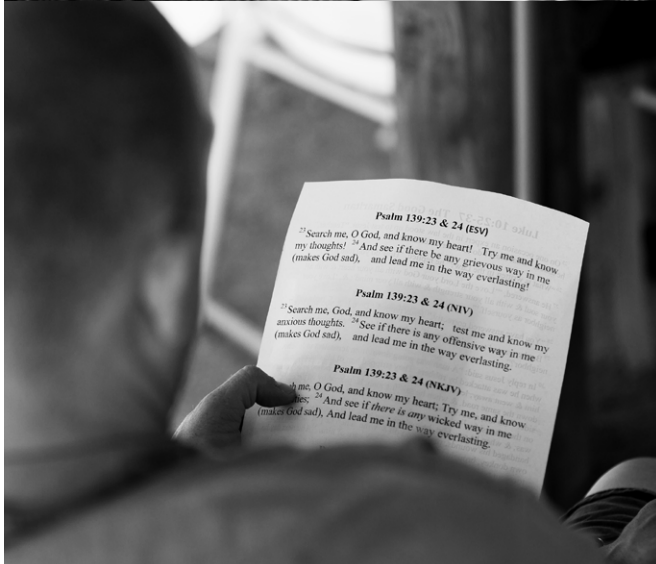 Psalm 139:23 & 24 (ESV)
23Search me, O God, and know my heart! Try me and know
my thoughts! 24And see if there be any grievous way in me
(makes God sad), and lead me in the way everlasting!
Psalm 139:23 & 24 (NIV)
23Search me, God, and know my heart; test me and know my
anxious thoughts. 24See if there is any offensive way in me
(makes God sad), and lead me in the way everlasting.
Psalm 139:23 & 24 (NKJV)
me, O God, and know my heart; Try me, and know
24And see if there is any wicked way in me
(makes God sad), And lead me in the way everlasting.